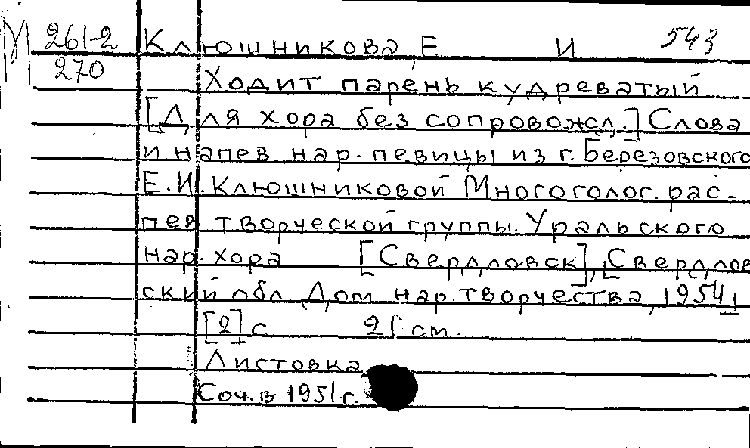 М 261-2 Клюшникова Е И 543
270
Ходит парень кудреватый
[Для хора без сопровожд.] Слова
и напев нар. певицы из г. Березовского
Е.И. Клюшниковой Многоголос. рас-
пев творческой группы Уральского
нар. хора [Свердловск], Свердлов
ский обл Дом нар. творчества, 1954
[2] с 21 см.
Листовка
Соч. в 1951 г.